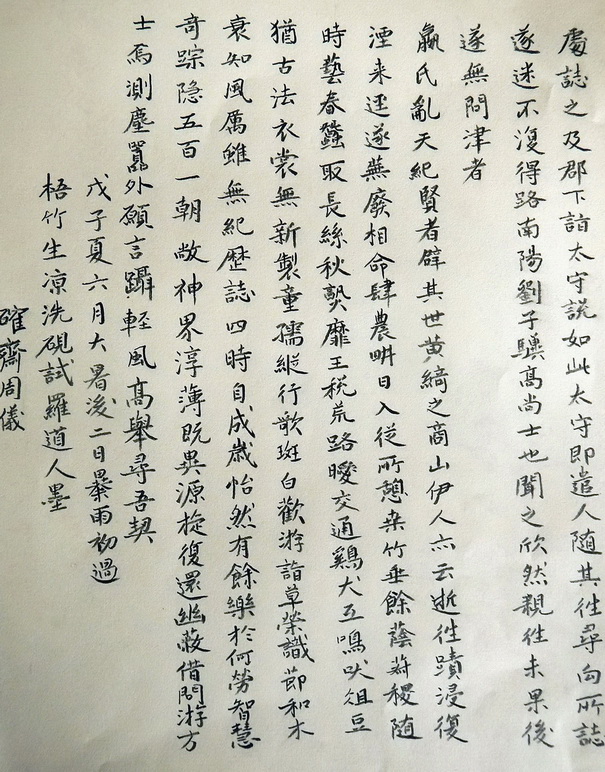 處誌之及郡下詣太守說如此太守即遣人隨其往尋向所誌
遂迷不復得路南陽劉子驥高尚士也聞之欣然親往未果後
遂無問津者
嬴氏亂天紀賢者避其世黃綺之商山伊人亦云逝往蹟浸復
湮来逕遂蕪廢相命肆農畊日入從所憩桒竹垂餘蔭菽稷隨
時藝春蠶取長絲秋熟靡王稅荒路曖交通鷄犬互鳴吠俎豆
猶古法衣裳無新製童孺縱行歌斑白歡游詣草榮識節和木
衰知風厲雖無紀歷誌四時自成歲怡然有餘樂於何勞智慧
奇踪隐五百一朝敞神界淳薄既異源旋復還幽蔽借問游方
士焉測塵囂外願言躡輕風高舉尋吾契
戊子夏六月大暑後二日暴雨初過
梧竹生凉洗硯試羅道人墨
確齋周儀